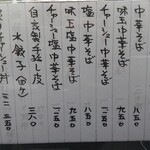 中華そば 八五〇
味玉中華そば 九五〇
チャーシュー中華そば 一二五〇
塩中華そば 八五〇
味玉塩中華そば 九五〇
チャーシュー塩中華そば 一二五〇
自家製手延し皮
水餃子(四ヶ) 三六〇